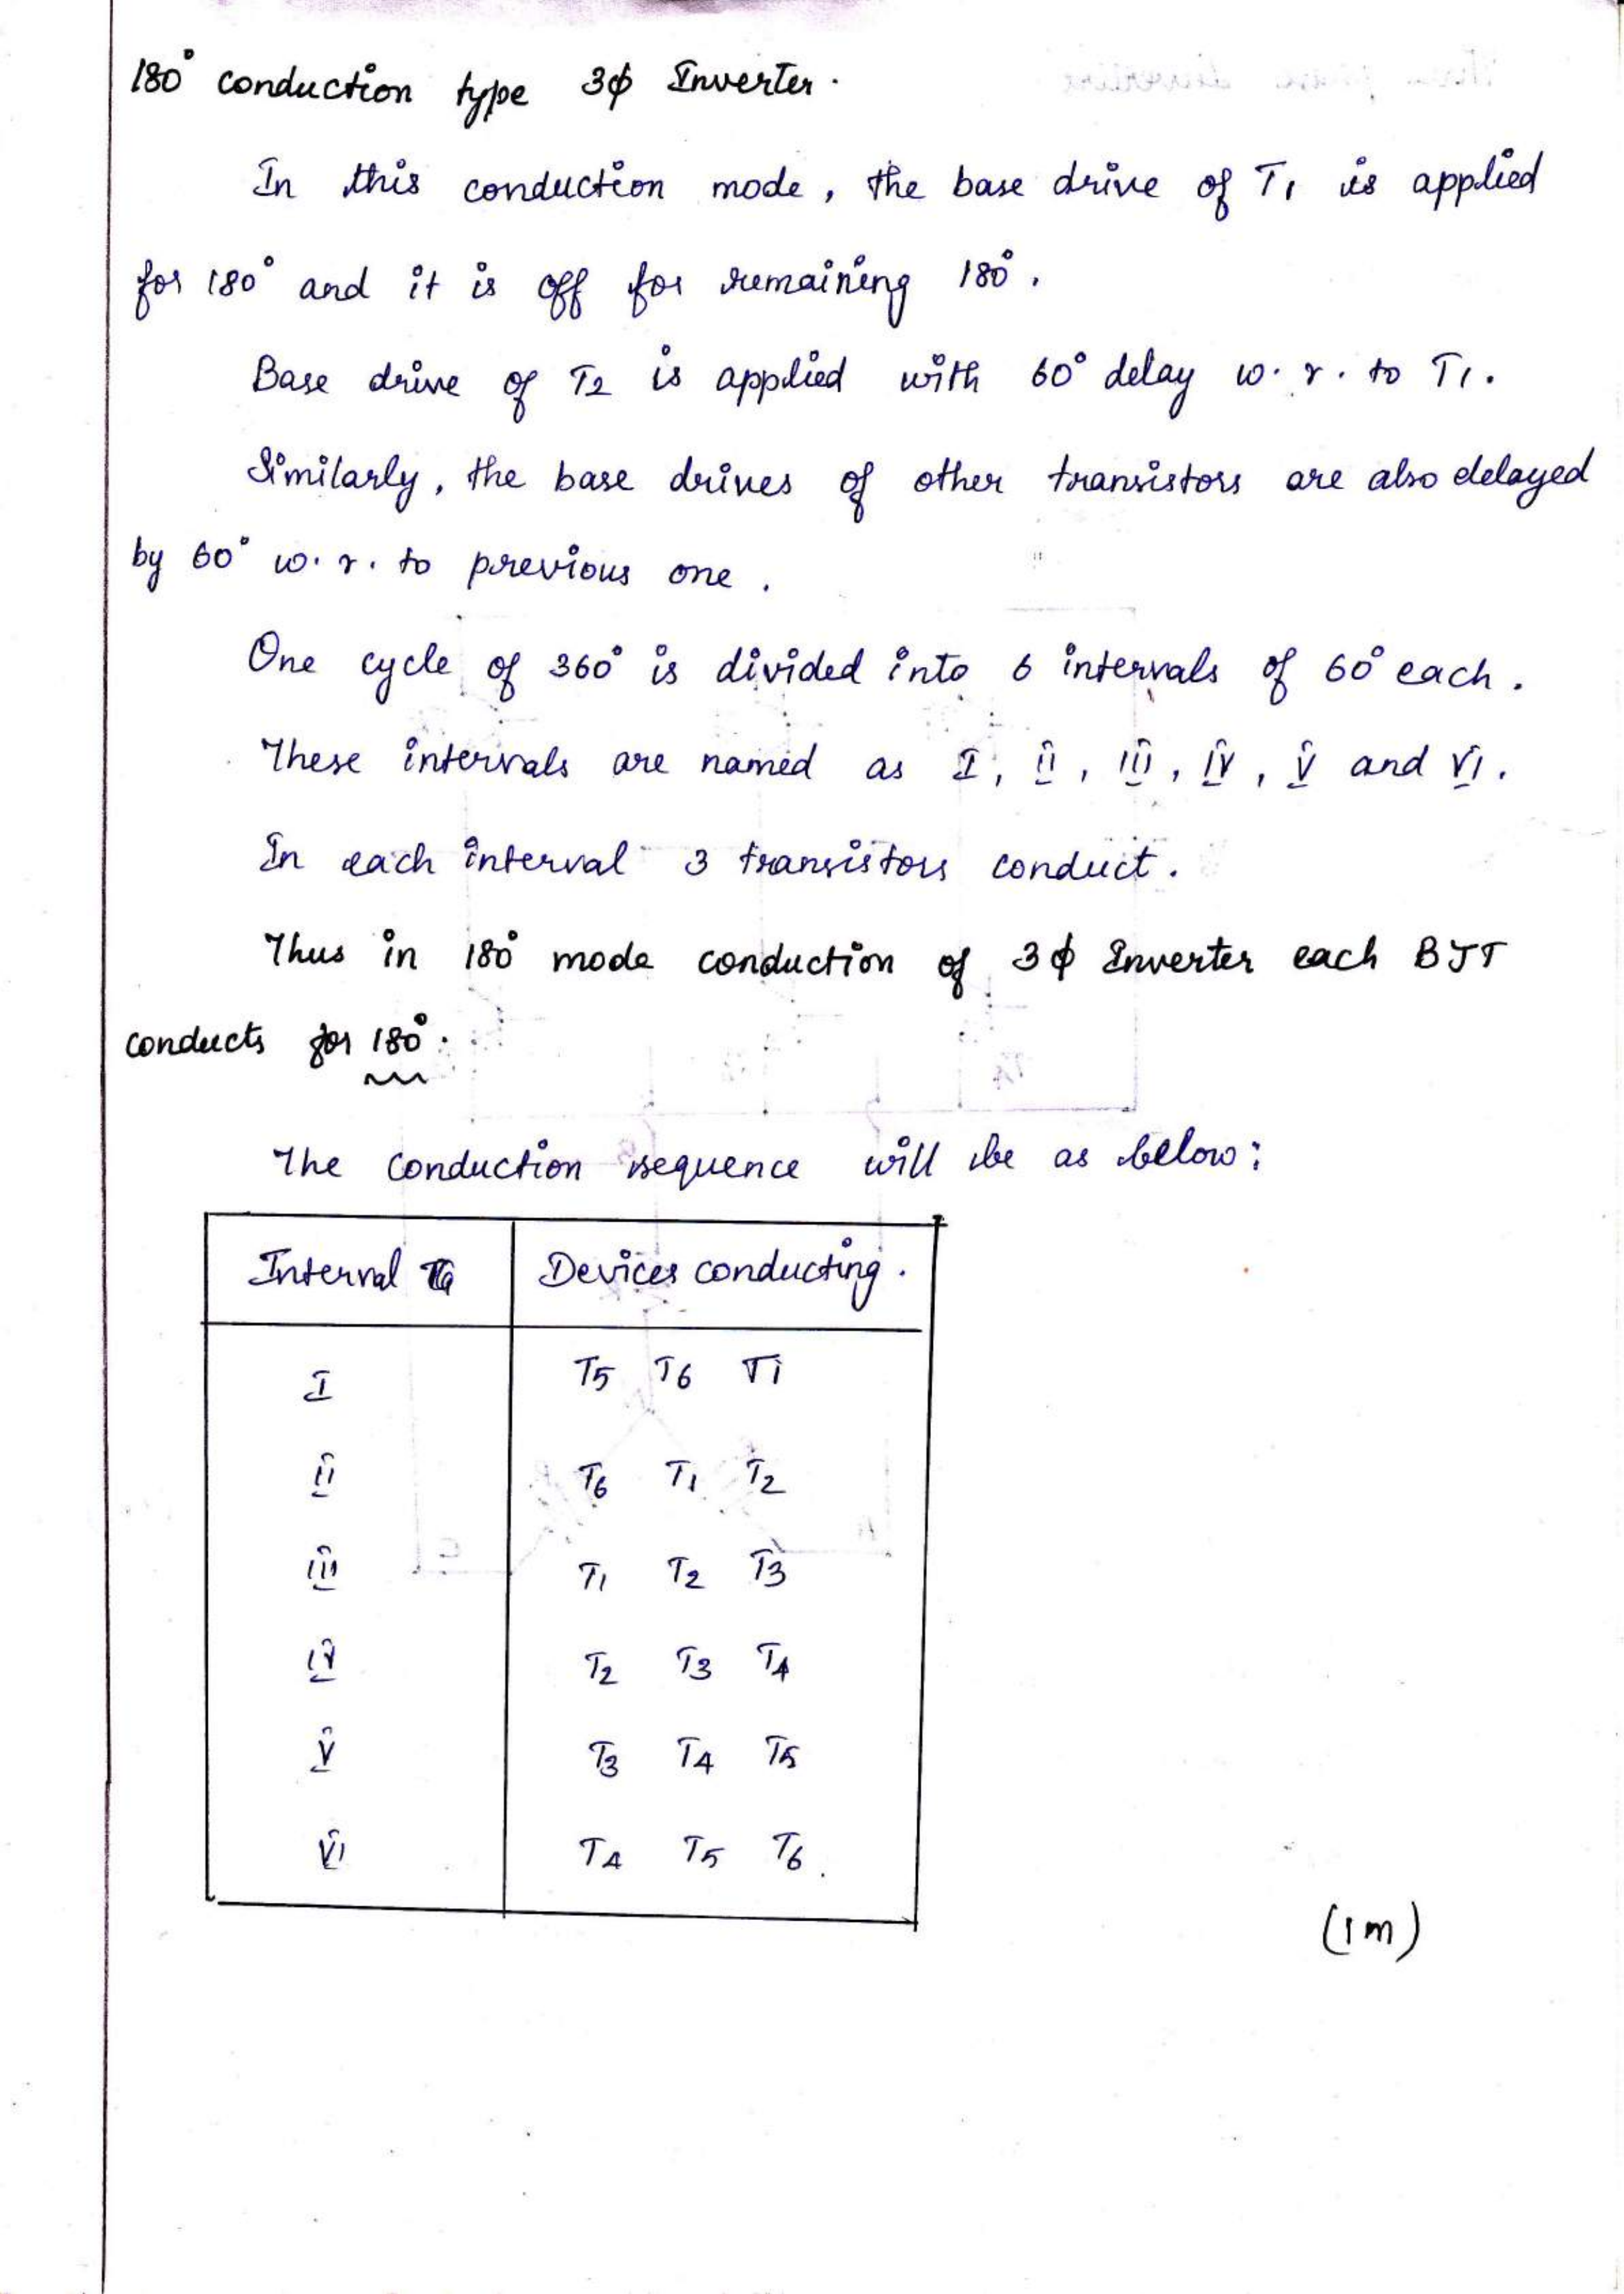 180° conduction type 3ϕ Inverter.
In this conduction mode, the base drive of T1 is applied
for 180° and it is off for remaining 180°.
Base drive of T2 is applied with 60° delay w.r. to T1.
Similarly, the base drives of other transistors are also delayed
by 60° w.r. to previous one.
One cycle of 360° is divided into 6 intervals of 60° each.
These intervals are named as I, II, III, IV, V and VI.
In each interval 3 transistors conduct.
Thus in 180° mode conduction of 3ϕ Inverter each BJT
conducts for 180°.
The conduction sequence will be as below:
Interval Devices conducting.
I T5 T6 T1
II T6 T1 T2
III T1 T2 T3
IV T2 T3 T4
V T3 T4 T5
VI T4 T5 T6.
(1m)